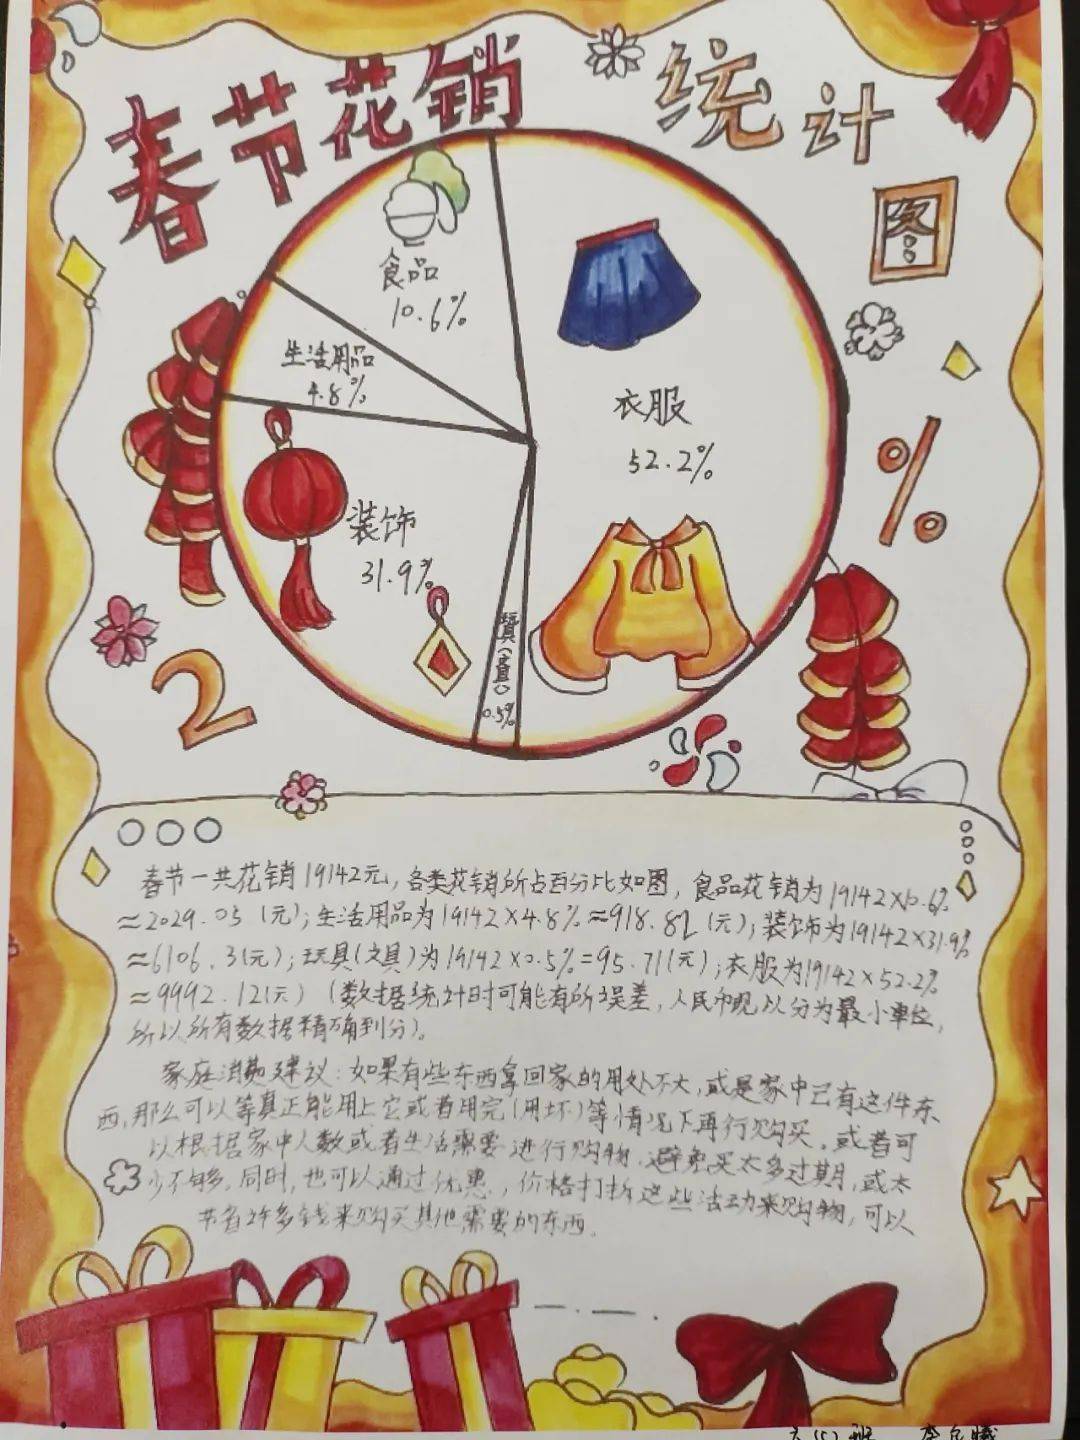 春节花销统计图
食品
10.6%
生活用品
4.8%
衣服
52.2%
装饰
31.9%
0.5%
%
2
春节一共花销19142元,各类花销所占百分比如图,食品花销为19142×10.6%
≈2029.05(元);生活用品为19142×4.8%≈918.82(元);装饰为19142×31.9%
≈6106.3(元);玩具(文具)为19142×0.5%=95.71(元);衣服为19142×52.2%
≈9992.12(元)(数据统计时可能有所误差,人民币现以分为最小单位,
所以所有数据精确到分)。
家庭消费建议:如果有些东西拿回家的用处不大,或是家中已有这件东
西,那么可以等真正能用上它或者用完(用坏)等情况下再行购买。或者可
以根据家中人数或者生活需要进行购物,避免买太多过期,或太
少不够。同时,也可以通过优惠,价格打折这些活动来购物,可以
节省许多钱来购买其他需要的东西.